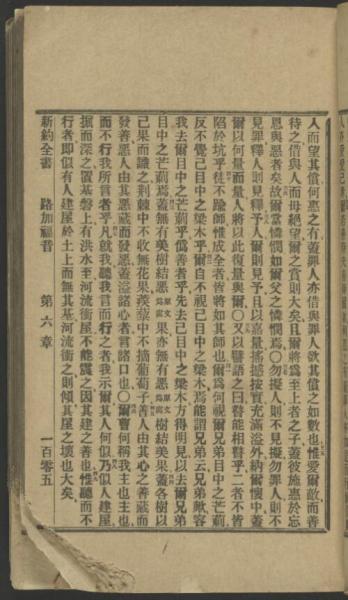 人而望其償何惠之有蓋罪人亦借與罪人欲其償之如數也惟愛爾敵而善
待之借與人而毋絕望爾之賞則大矣且爾將爲至上者之子蓋彼施惠於忘
恩與惡者故爾當憐憫如爾父之憐憫焉〇勿擬人則不見擬勿罪人則不
見罪釋人則見釋予人則爾見予且以嘉量搖撼按實充滿溢外納爾懷中蓋
爾以何量而量人將以此復量與爾〇又以譬語之曰瞽能相瞽乎二者不皆
陷於坑乎徒不踰師惟成全者皆將如其師也爾爲何視爾兄弟目中之芒薊
反不覺己目中之梁木乎爾自不視己目中之梁木焉能謂兄弟云兄弟歟容
我去爾目中之芒薊乎僞善者乎先去己目中之梁木方得明見以去爾兄弟
目中之芒薊焉蓋無美樹結惡果亦無有惡樹結美果蓋各樹以
己果而識之荆棘中不收無花果蒺藜中不摘葡萄子善人由其心之善藏而
發善惡人由其惡藏而發惡蓋溢諸心者言諸口也〇爾曹何稱我主也主也
而不行我所言者乎凡就我聽我言而行之者我示爾其人何似乃似人建屋
掘而深之置基磐上有洪水至河流衝屋不能震之因其建之善也惟聽而不
行者即似有人建屋於土上而無其基河流衝之則傾其屋之壞也大矣
新約全書 路加福音 第六章 一百零五